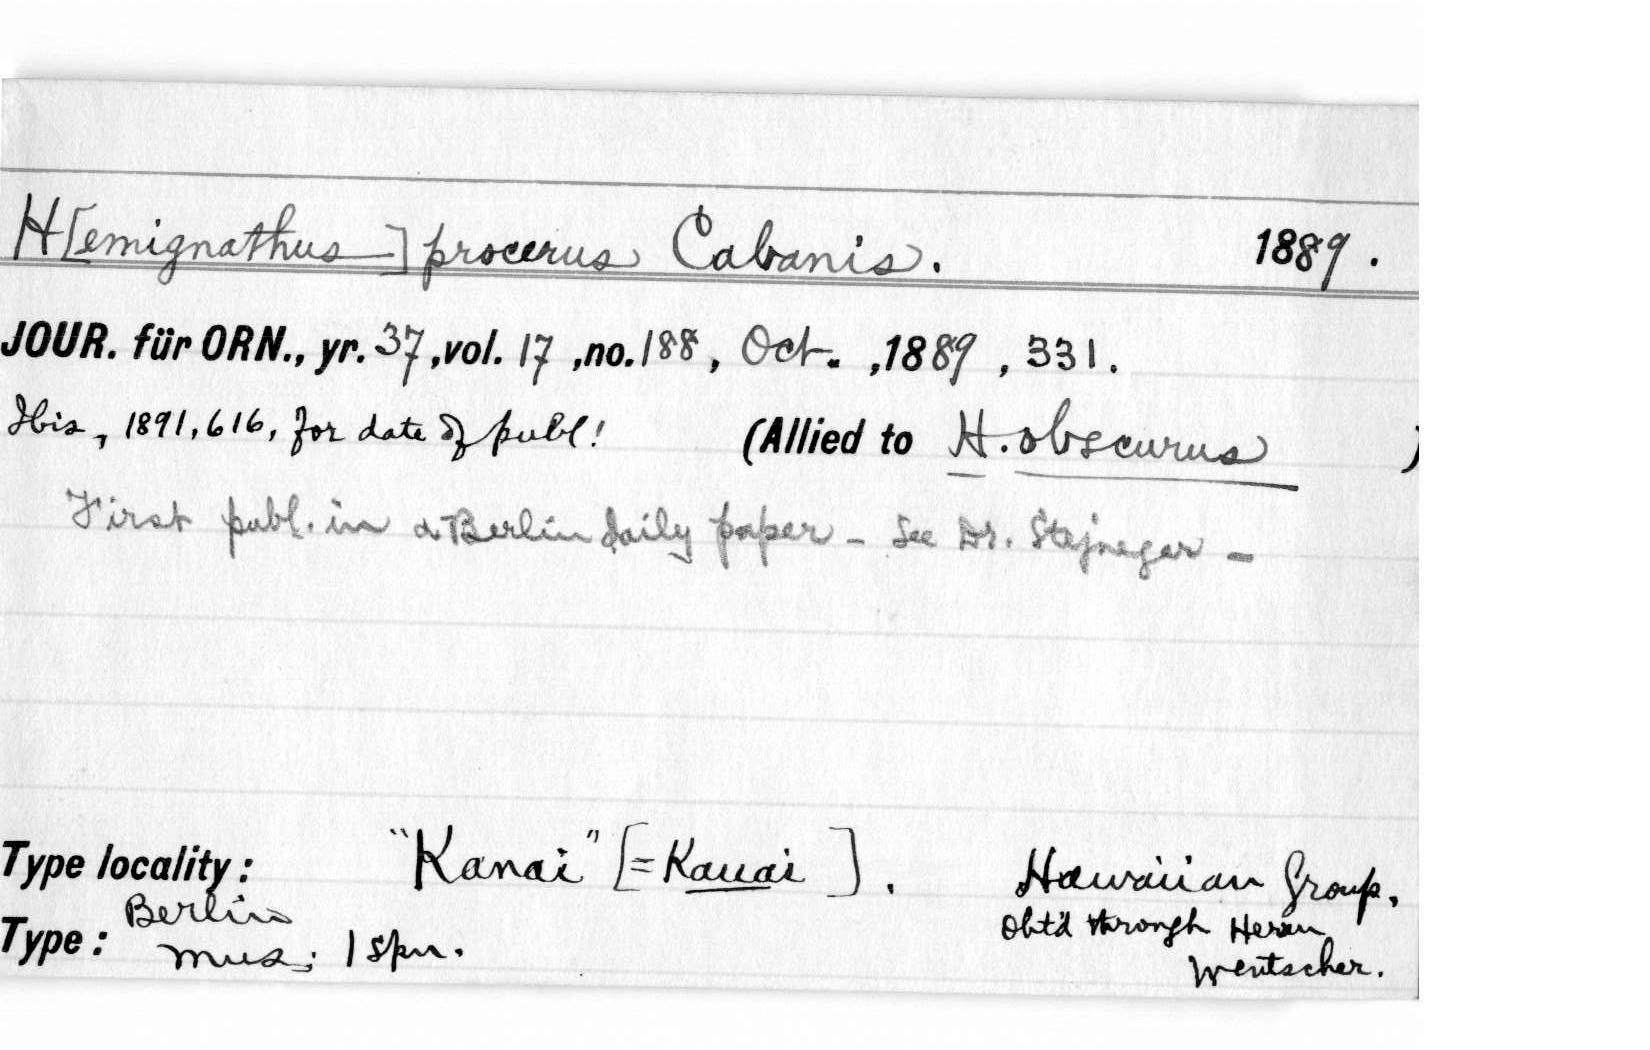 H[emignathus] procerus Cabanis. 1889.
JOUR. für ORN., yr. 37, vol. 17, no. 188, Oct., 1889, 331.
Ibis, 1891, 616, for date of publ! (Allied to H. obscurus )
First publ. in a Berlin daily paper - See Dr. Stejneger -
Type locality: "Kanai" [= Kauai]. Hawaiian Group.
Type: Berlin Mus; 1 spm. Obt'd through Herrn
Wentscher.